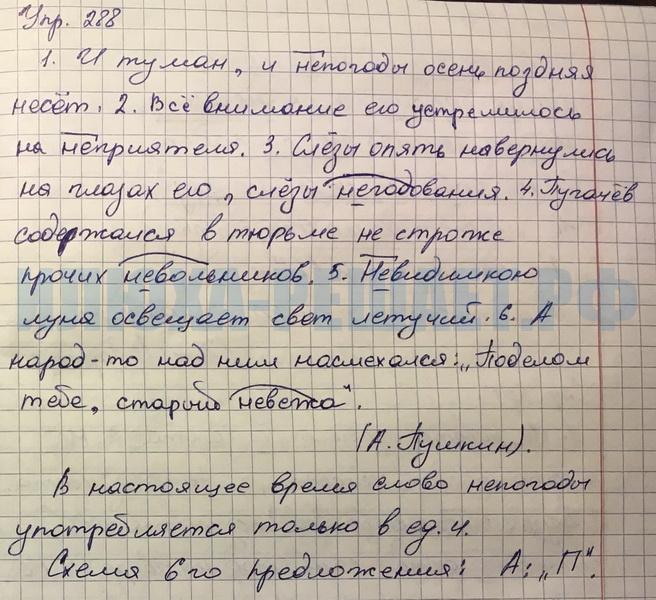 Упр. 288
1. И туман, и непогоды осень поздняя
несёт. 2. Всё внимание его устремилось
на неприятеля. 3. Слёзы опять навернулись
на глазах его, слёзы негодования. 4. Пугачёв
содержался в тюрьме не строже
прочих невольников. 5. Невидимкою
луна освещает снег летучий. 6. А
народ-то над ним насмехался: „Поделом
тебе, старый невежа".
(А. Пушкин).
В настоящее время слово непогоды
употребляется только в ед. ч.
Схема 6го предложения: А: „П".